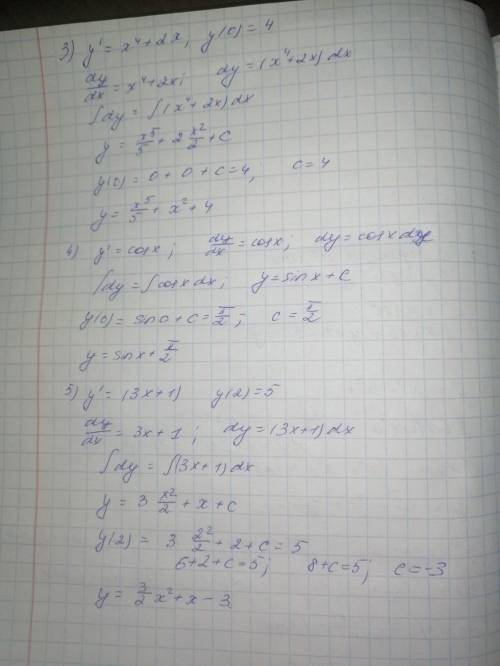 3) y' = x⁴+2x, y(0) = 4
dy/dx = x⁴+2x; dy = (x⁴+2x) dx
∫dy = ∫(x⁴+2x) dx
y = x⁵/5 + 2 x²/2 + C
y(0) = 0 + 0 + C = 4; C = 4
y = x⁵/5 + x² + 4
4) y' = cosx; dy/dx = cosx; dy = cosx dx
∫dy = ∫cosx dx; y = sinx + C
y(0) = sin0 + C = π/2; C = π/2
y = sinx + π/2
5) y' = (3x+1) y(2) = 5
dy/dx = 3x + 1; dy = (3x+1) dx
∫dy = ∫(3x+1) dx
y = 3 x²/2 + x + C
y(2) = 3 2²/2 + 2 + C = 5
6+2+C=5; 8+C=5; C=-3
y = 3/2 x² + x - 3